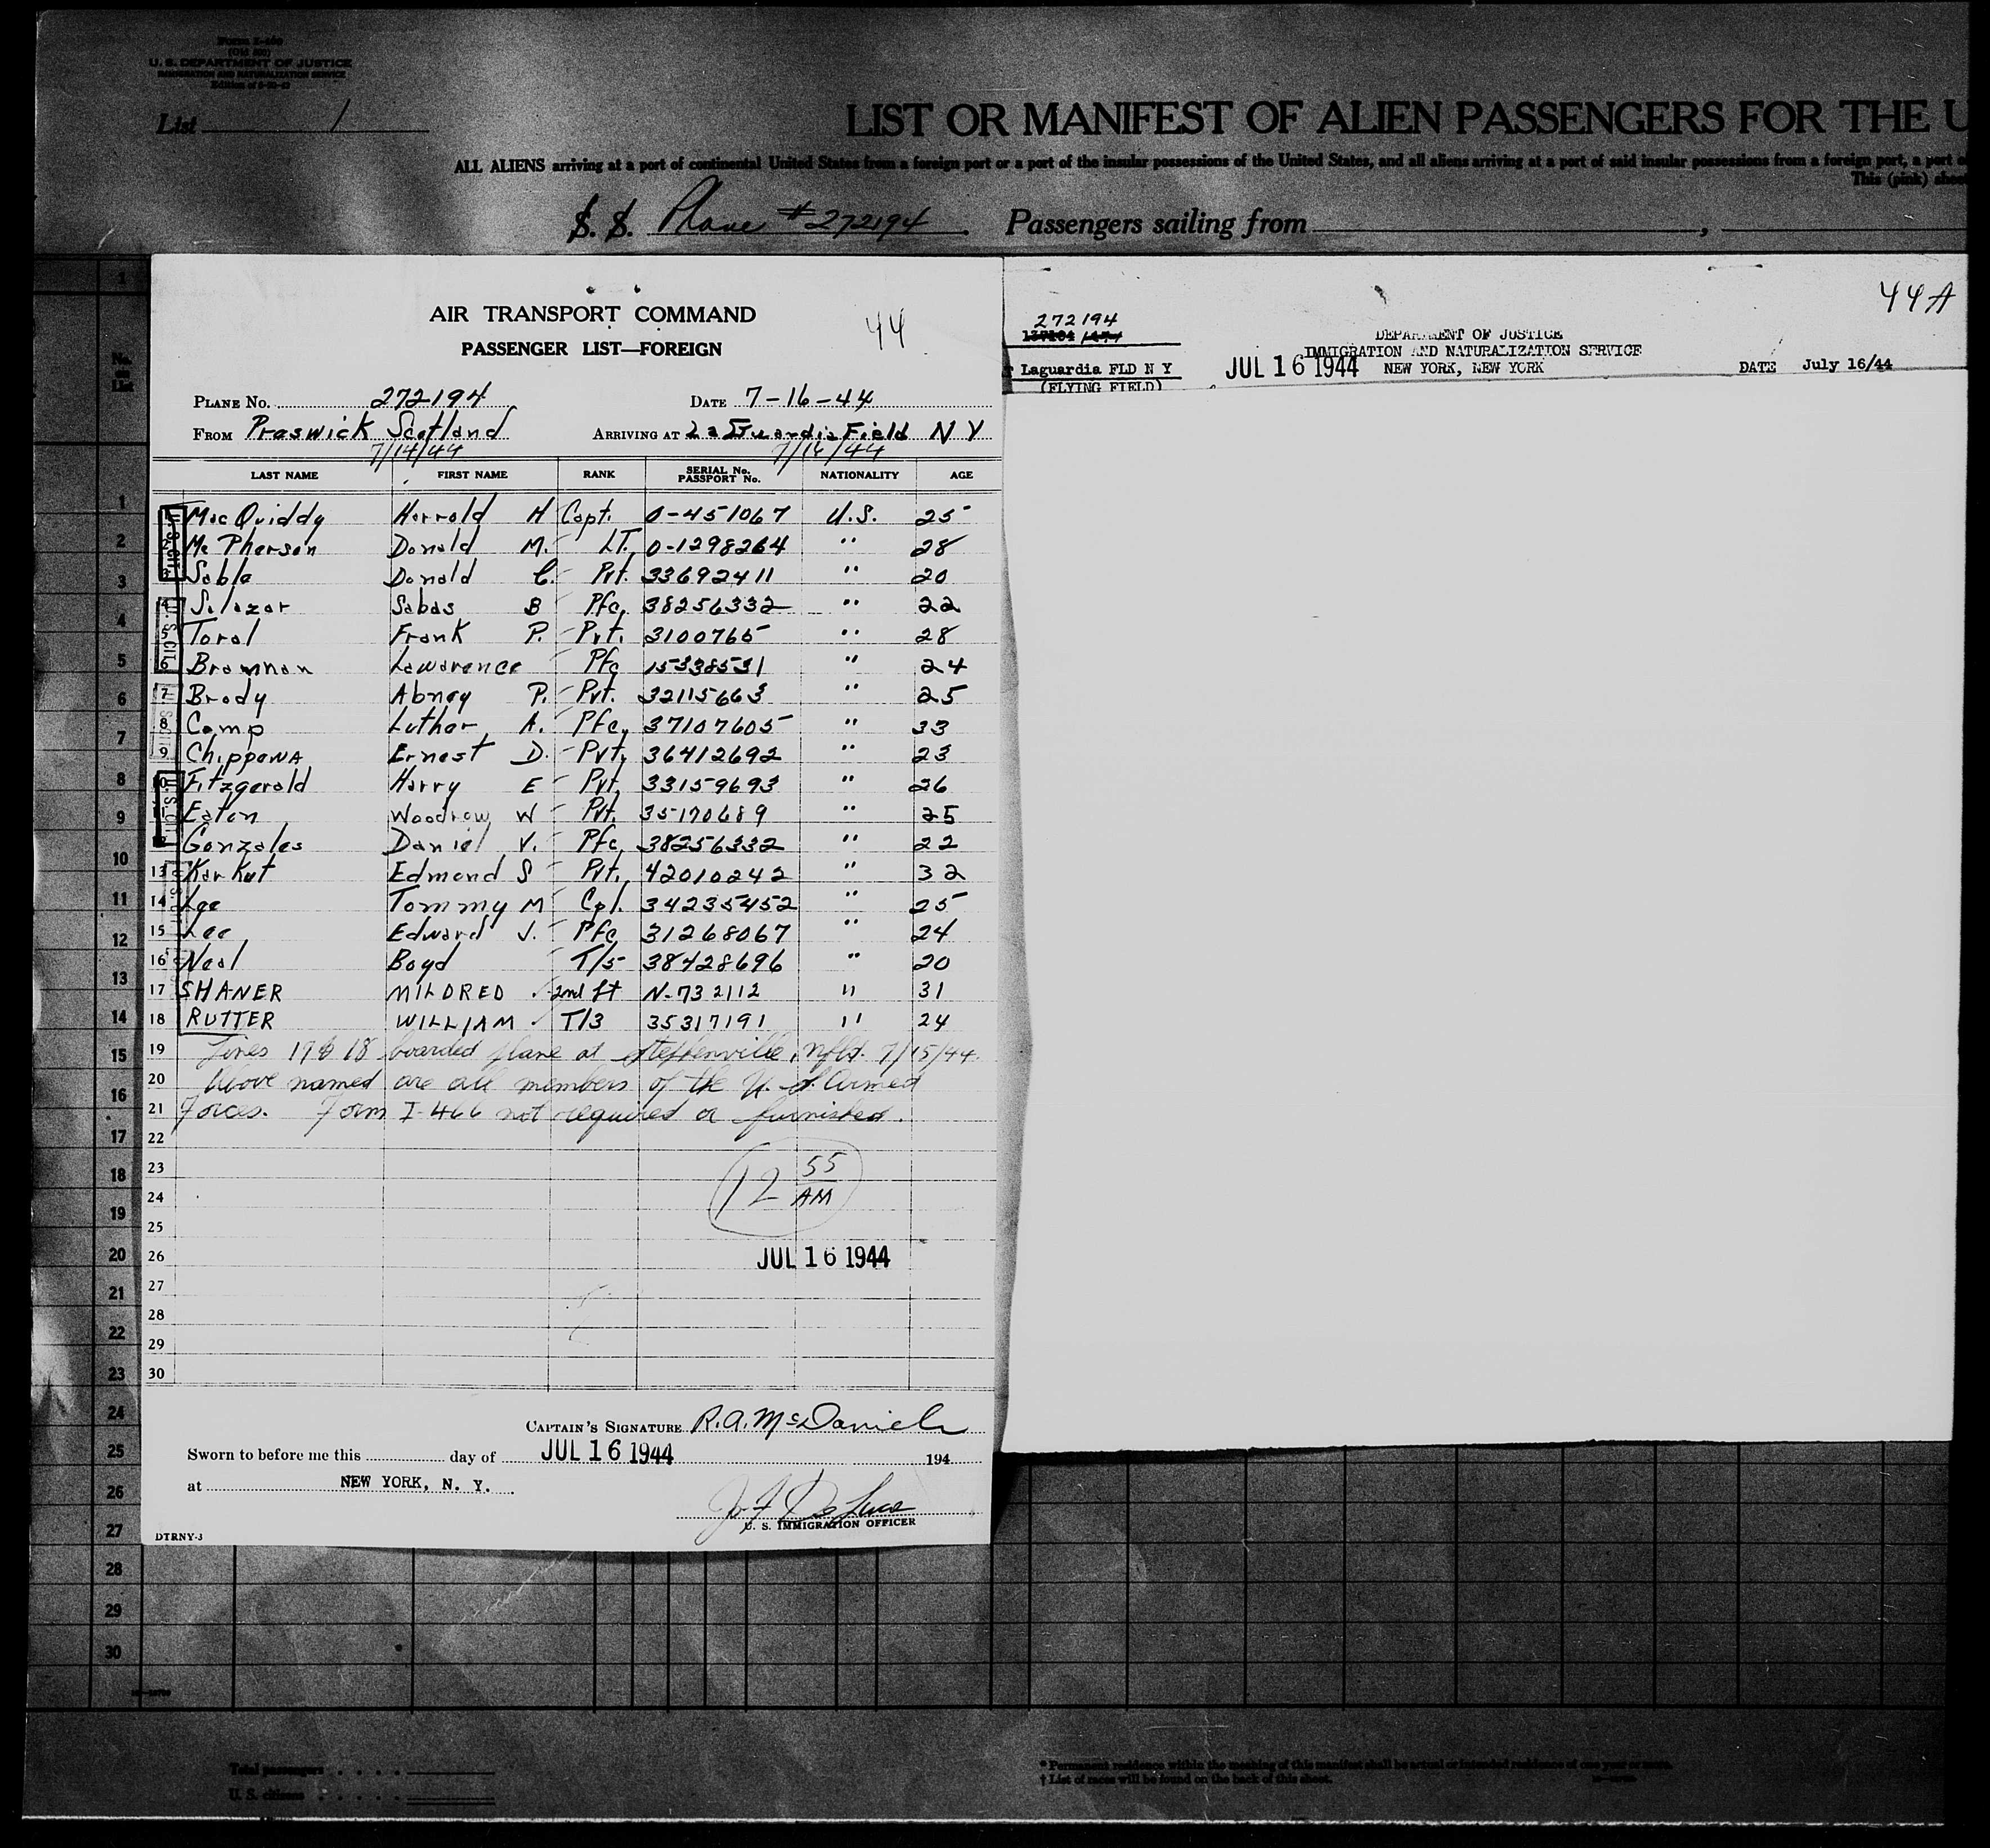 Form I-466
(Old 500)
U. S. DEPARTMENT OF JUSTICE
IMMIGRATION AND NATURALIZATION SERVICE
List 1
LIST OR MANIFEST OF ALIEN PASSENGERS FOR THE U
ALL ALIENS arriving at a port of continental United States from a foreign port or a port of the insular possessions of the United States, and all aliens arriving at a port of said insular possessions from a foreign port, a port o
This (pink) shee
S. S. Plane #272194 Passengers sailing from
No. on List
AIR TRANSPORT COMMAND
PASSENGER LIST—FOREIGN
44
PLANE No. 272194 DATE 7-16-44
FROM Preswick Scotland ARRIVING AT La Guardia Field N Y
7/14/44 7/16/44
LAST NAME FIRST NAME RANK SERIAL No. PASSPORT No. NATIONALITY AGE
1 MacQuiddy Horrold H Capt. 0-451067 U.S. 25
2 Mc Pherson Donald M. LT. 0-1298264 " 28
3 Sable Donald C. Pvt. 33692411 " 20
4 Salazar Sabas B Pfc. 38256332 " 22
5 Toral Frank P. Pvt. 3100765 " 28
6 Bramnan Lawarence Pfc 15338531 " 24
7 Brody Abney P. Pvt. 32115663 " 25
8 Camp Luther A. Pfc. 37107605 " 33
9 Chippewa Ernest D. Pvt. 36412692 " 23
10 Fitzgerald Harry E Pvt. 33159693 " 26
11 Eaton Woodrow W Pvt. 35170689 " 25
12 Gonzales Daniel V. Pfc. 38256332 " 22
13 Karkut Edmond S Pvt. 42010242 " 32
14 Lee Tommy M Cpl. 34235452 " 25
15 Lee Edward J. Pfc 31268067 " 24
16 Neal Boyd T/5 38428696 " 20
17 SHANER MILDRED 2nd Lt N-732112 " 31
18 RUTTER WILLIAM T/3 35317191 " 24
19 Lines 17 & 18 boarded plane at Stephenville, Nfld. 7/15/44.
20 Above named are all members of the U. S. Armed
21 Forces. Form I-466 not required or furnished.
22
23
24
25
26
27
28
29
30
12 55 AM
JUL 16 1944
CAPTAIN'S SIGNATURE R. A. McDaniels
Sworn to before me this day of JUL 16 1944 194
at NEW YORK, N. Y.
U. S. IMMIGRATION OFFICER
DTRNY-3
44A
272194
Laguardia FLD N Y
(FLYING FIELD)
JUL 16 1944
DEPARTMENT OF JUSTICE
IMMIGRATION AND NATURALIZATION SERVICE
NEW YORK, NEW YORK
DATE July 16/44
1
2
3
4
5
6
7
8
9
10
11
12
13
14
15
16
17
18
19
20
21
22
23
24
25
26
27
28
29
30
Total passengers
U. S. citizens
* Permanent residence within the meaning of this manifest shall be actual or intended residence of one year or more.
† List of races will be found on the back of this sheet.